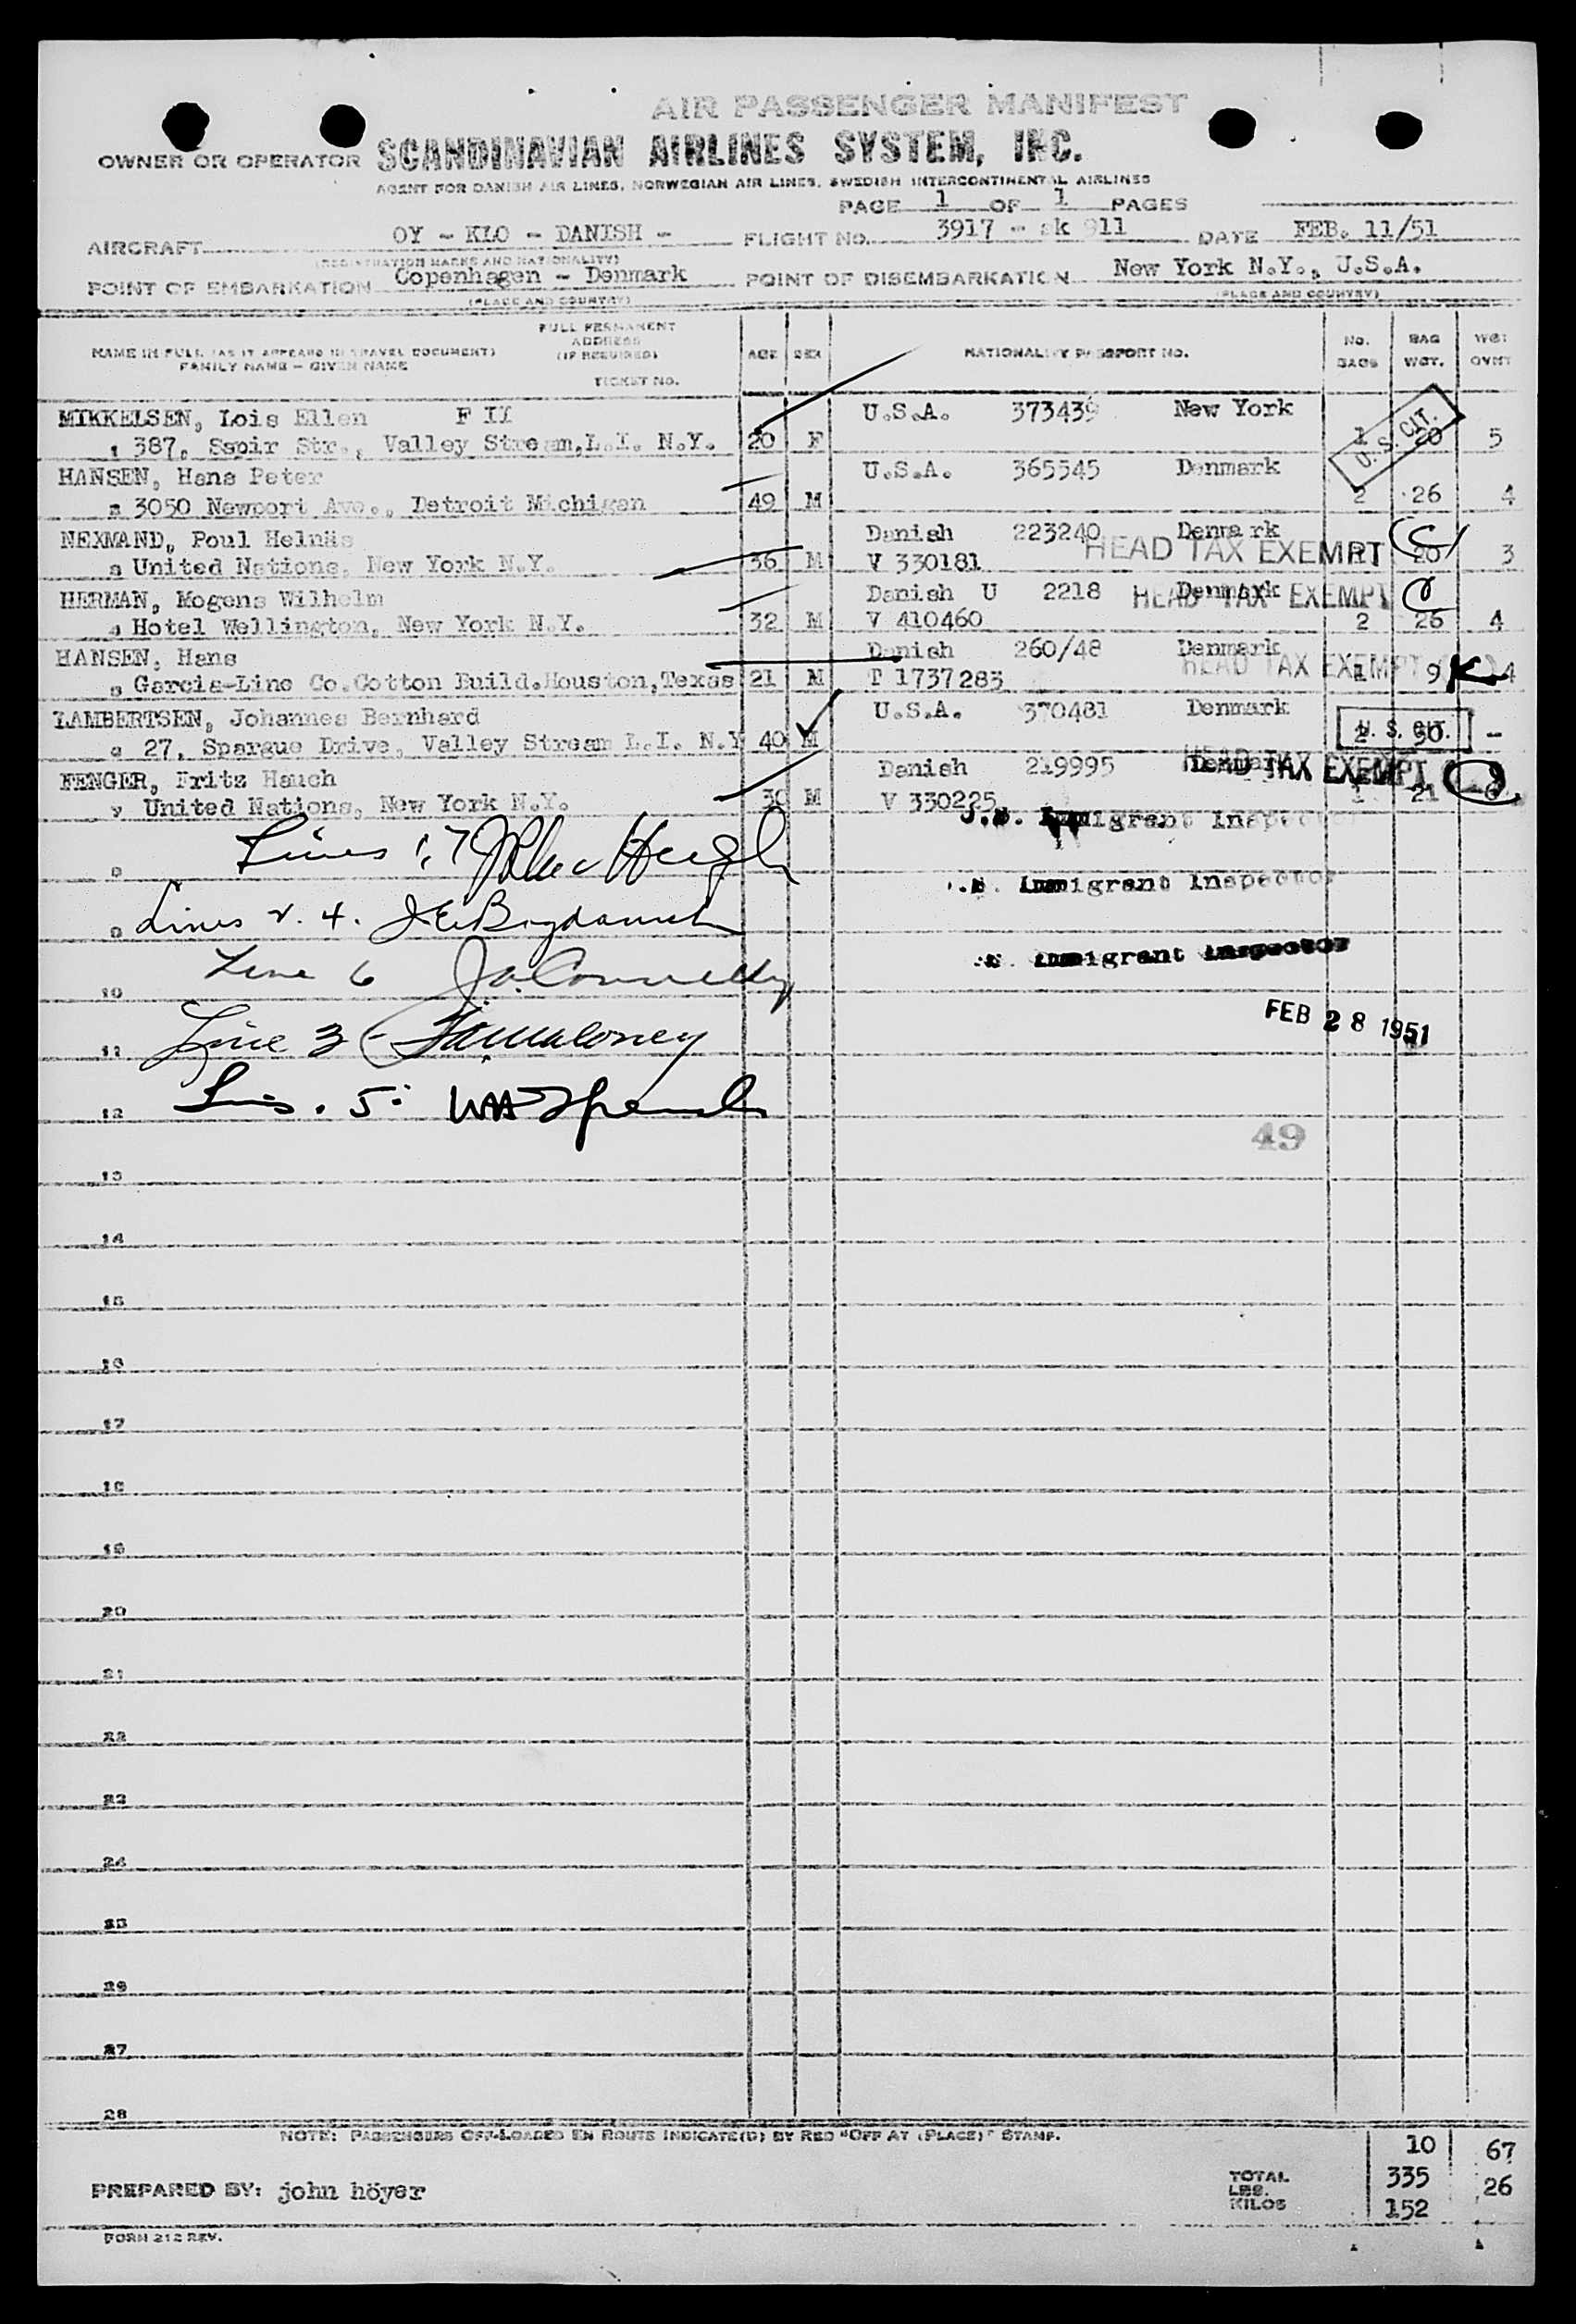 AIR PASSENGER MANIFEST
OWNER OR OPERATOR SCANDINAVIAN AIRLINES SYSTEM, INC.
AGENT FOR DANISH AIR LINES, NORWEGIAN AIR LINES, SWEDISH INTERCONTINENTAL AIRLINES
PAGE 1 OF 1 PAGES
AIRCRAFT OY - KLO - DANISH - FLIGHT NO. 3917 - sk 911 DATE FEB. 11/51
(REGISTRATION MARKS AND NATIONALITY)
POINT OF EMBARKATION Copenhagen - Denmark POINT OF DISEMBARKATION New York N.Y., U.S.A.
(PLACE AND COUNTRY) (PLACE AND COUNTRY)
NAME IN FULL (AS IT APPEARS IN TRAVEL DOCUMENT) FAMILY NAME - GIVEN NAME
FULL PERMANENT ADDRESS (IF REQUIRED) TICKET NO.
AGE SEX NATIONALITY PASSPORT NO. NO. BAGS BAG WGT. WGT OVWT
MIKKELSEN, Lois Ellen F II U.S.A. 373439 New York
1 387, Sapir Str., Valley Stream, L.I. N.Y. 20 F 1 20 5
U.S. CIT.
HANSEN, Hans Peter U.S.A. 365545 Denmark
3050 Newport Ave., Detroit Michigan 49 M 2 26 4
NEXMAND, Poul Helnäs Danish 223240 Denmark
United Nations, New York N.Y. 36 M V 330181 20 3
HEAD TAX EXEMPT
HERMAN, Mogens Wilhelm Danish U 2218 Denmark
Hotel Wellington, New York N.Y. 32 M V 410460 2 26 4
HEAD TAX EXEMPT
HANSEN, Hans Danish 260/48 Denmark
Garcia-Line Co. Cotton Build. Houston, Texas 21 M T 1737283 1 9 4
HEAD TAX EXEMPT
LAMBERTSEN, Johannes Bernhard U.S.A. 370481 Denmark
27, Spargue Drive, Valley Stream L.I. N.Y 40 M 30 -
U. S. CIT.
FENGER, Fritz Hauch Danish 219995 Denmark
United Nations, New York N.Y. 30 M V 330225 1 21 6
HEAD TAX EXEMPT
Lines 1, 7
U.S. Immigrant Inspector
Lines 2. 4.
Immigrant Inspector
10 Line 6 J.A. Connelly
Immigrant Inspector
11 Line 3 - Maloney
FEB 28 1951
12 5:
49
13
14
15
16
17
18
19
20
21
22
23
24
25
26
27
28
NOTE: PASSENGERS OFF-LOADED EN ROUTE INDICATE(D) BY RED "OFF AT (PLACE)" STAMP.
10 67
PREPARED BY: john höyer
TOTAL LBS. 335 26
KILOS 152
FORM 212 REV.